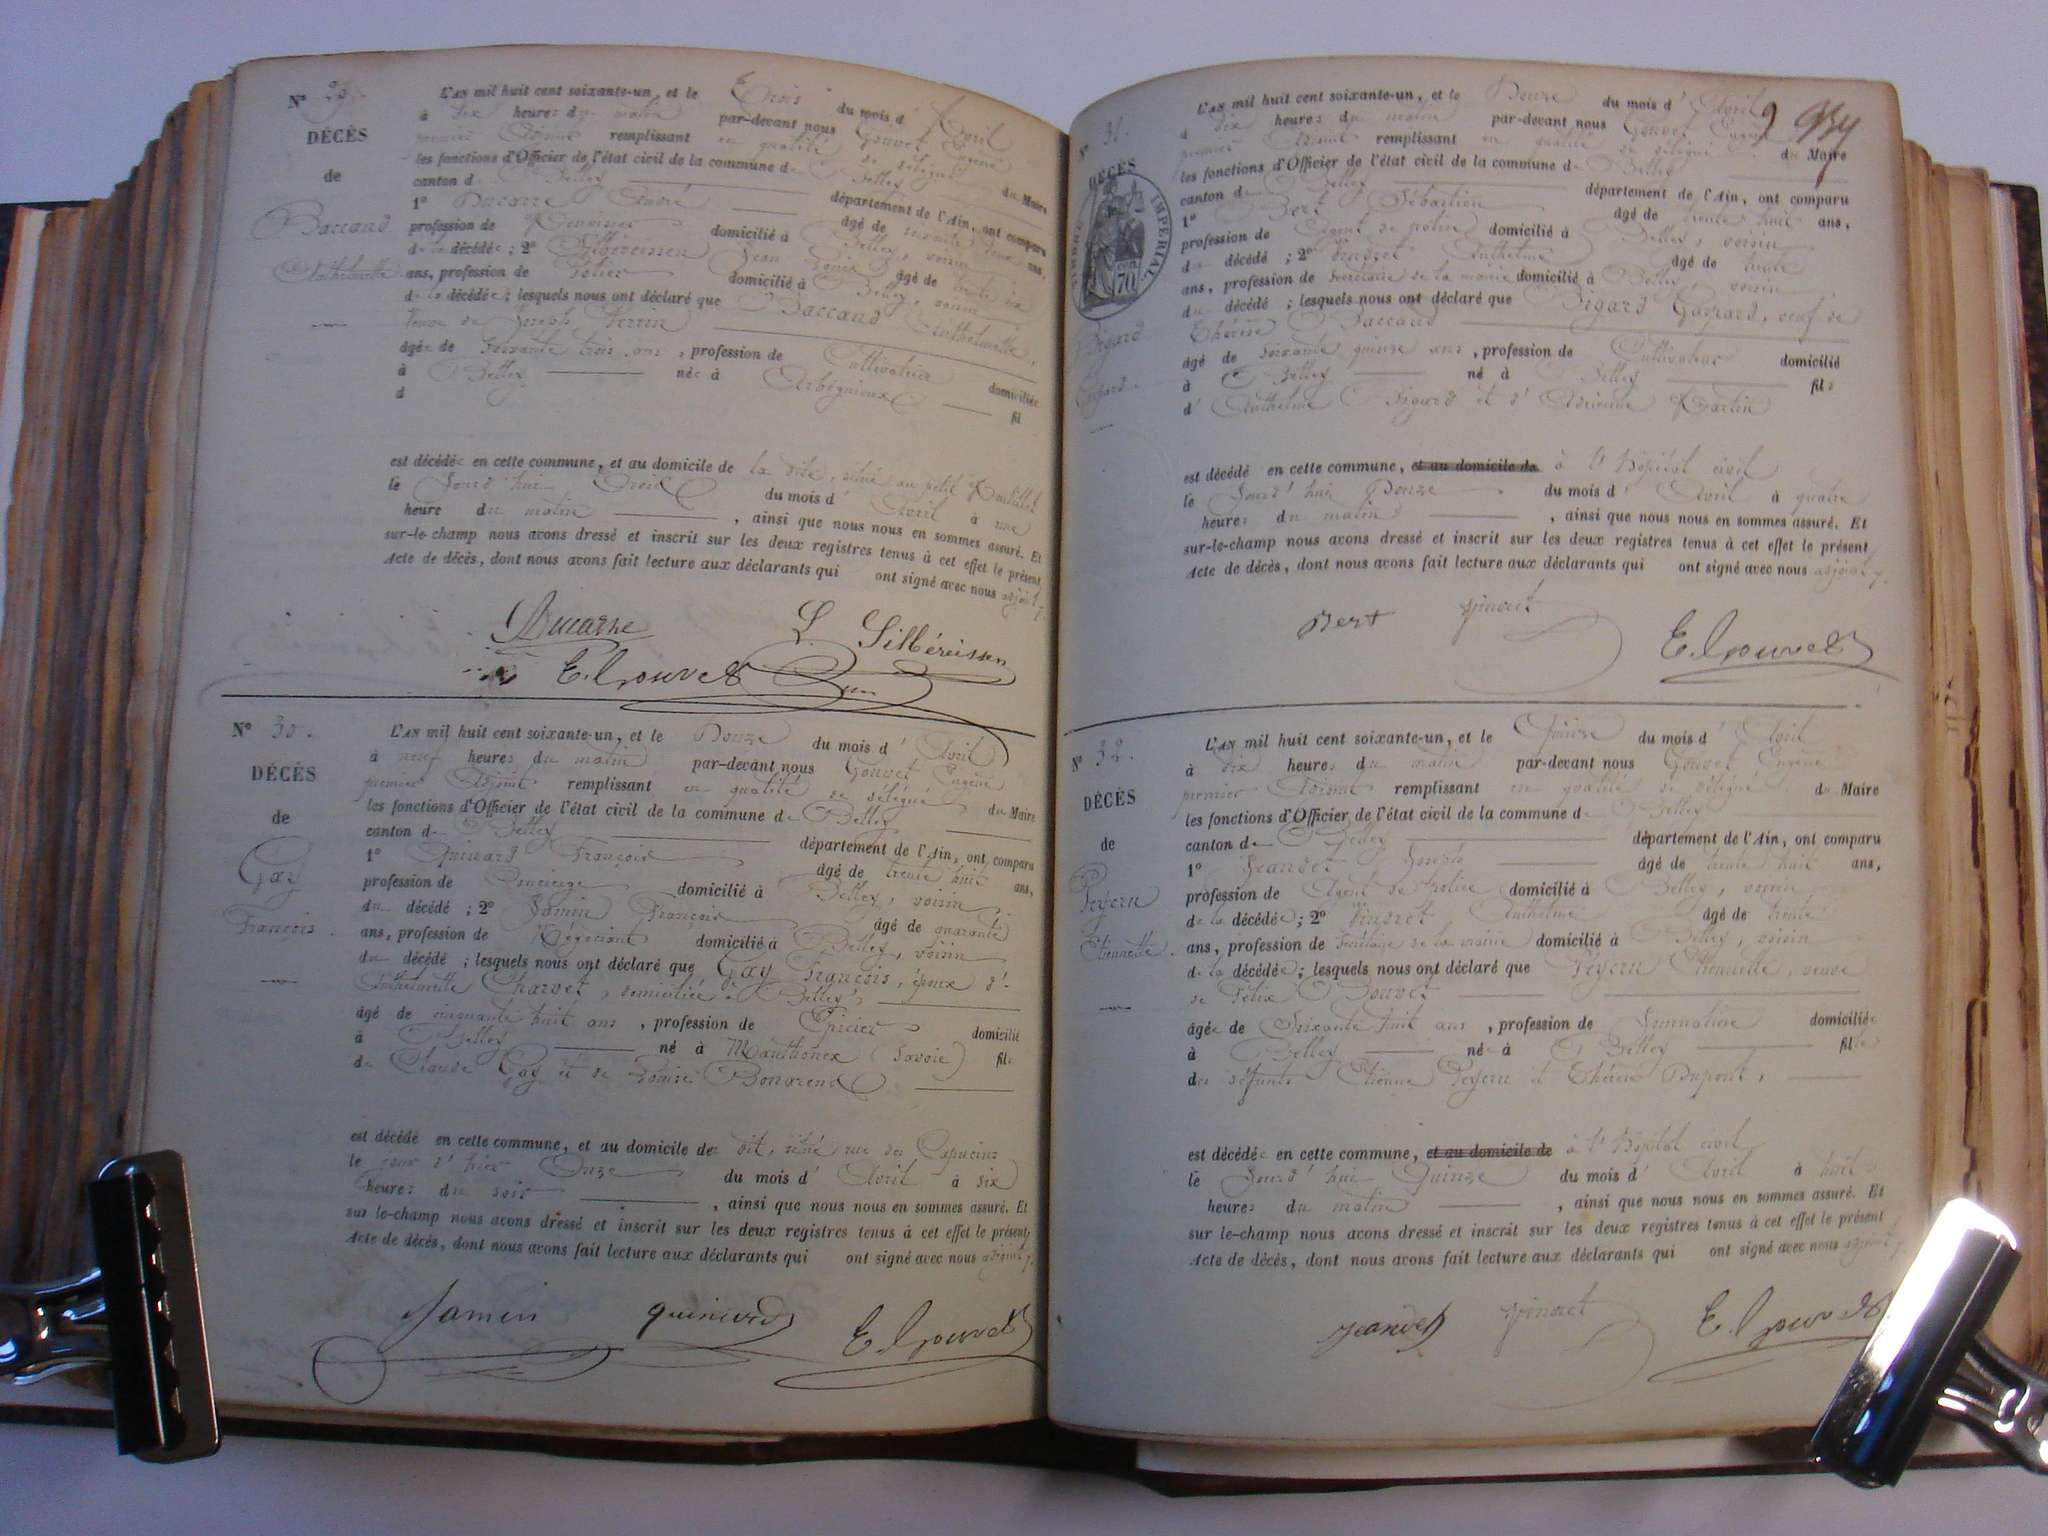 N° 29.
DÉCÈS
de
Baccand
Anthelmette
L'AN mil huit cent soixante-un, et le Trois du mois d'Avril
à dix heures du matin par-devant nous Gouvet Eugène
premier Adjoint remplissant en qualité de délégué du Maire
les fonctions d'Officier de l'état civil de la commune de Belley
canton de Belley département de l'Ain, ont comparu
1° Ducarre André âgé de soixante ans,
profession de domicilié à Belley, voisin
de la décédée ; 2° Silbereissen Jean Louis âgé de
ans, profession de domicilié à Belley, voisin
de la décédée ; lesquels nous ont déclaré que Baccand Anthelmette,
Veuve de Joseph Perrin
âgée de soixante trois ans, profession de Cultivateur domiciliée
à Belley née à Arbignieux fil
d
est décédée en cette commune, et au domicile de la dite, situé au petit
le Jourd'hui Trois du mois d'Avril à une
heure du matin, ainsi que nous nous en sommes assuré. Et
sur-le-champ nous avons dressé et inscrit sur les deux registres tenus à cet effet le présent
Acte de décès, dont nous avons fait lecture aux déclarants qui ont signé avec nous adjoint
Ducarre L. Silbéreissen
E. Gouvet
N° 30.
DÉCÈS
de
Gay
François.
L'AN mil huit cent soixante-un, et le Douze du mois d'Avril
à neuf heures du matin par-devant nous Gouvet Eugène
premier Adjoint remplissant en qualité de délégué du Maire
les fonctions d'Officier de l'état civil de la commune de Belley
canton de Belley département de l'Ain, ont comparu
1° Quinard François âgé de trente huit ans,
profession de Concierge domicilié à Belley, voisin
du décédé ; 2° Jamin François âgé de quarante
ans, profession de Négociant domicilié à Belley, voisin
du décédé ; lesquels nous ont déclaré que Gay François, époux d'
Anthelmette Charvet, domiciliée à Belley,
âgé de cinquante huit ans, profession de Epicier domicilié
à Belley né à Manthonex (Savoie) fils
de Claude Gay et de Louise Bonarend
est décédé en cette commune, et au domicile de dit, situé rue des Capucins
le jour d'hier Onze du mois d'Avril à six
heures du soir, ainsi que nous nous en sommes assuré. Et
sur-le-champ nous avons dressé et inscrit sur les deux registres tenus à cet effet le présent
Acte de décès, dont nous avons fait lecture aux déclarants qui ont signé avec nous adjoint
Jamin quinard E. Gouvet
9
N° 31.
DÉCÈS
TIMBRE IMPÉRIAL
70
Bigard
Gaspard.
L'AN mil huit cent soixante-un, et le Douze du mois d'Avril
à dix heures du matin par-devant nous Gouvet Eugène
premier Adjoint remplissant en qualité de délégué du Maire
les fonctions d'Officier de l'état civil de la commune de Belley
canton de Belley département de l'Ain, ont comparu
1° Bert Sébastien âgé de trente huit ans,
profession de Agent de police domicilié à Belley, voisin
du décédé ; 2° Vinoret Anthelme âgé de trente
ans, profession de Secrétaire de la mairie domicilié à Belley, voisin
du décédé ; lesquels nous ont déclaré que Bigard Gaspard, veuf de
Thérèse Baccand
âgé de soixante quinze ans, profession de Cultivateur domicilié
à Belley né à Belley fils
d'Anthelme Bigard et d'Adrienne Martin
est décédé en cette commune, et au domicile de à l'Hôpital civil
le Jourd'hui Douze du mois d'Avril à quatre
heures du matin, ainsi que nous nous en sommes assuré. Et
sur-le-champ nous avons dressé et inscrit sur les deux registres tenus à cet effet le présent
Acte de décès, dont nous avons fait lecture aux déclarants qui ont signé avec nous adjoint
Bert Vinoret
E. Gouvet
N° 32.
DÉCÈS
de
Peyern
Etiennette.
L'AN mil huit cent soixante-un, et le Quinze du mois d'Avril
à dix heures du matin par-devant nous Gouvet Eugène
premier Adjoint remplissant en qualité de délégué du Maire
les fonctions d'Officier de l'état civil de la commune de Belley
canton de Belley département de l'Ain, ont comparu
1° Jeandet Joseph âgé de trente huit ans,
profession de Agent de police domicilié à Belley, voisin
de la décédée ; 2° Vinoret Anthelme âgé de trente
ans, profession de Secrétaire de la mairie domicilié à Belley, voisin
de la décédée ; lesquels nous ont déclaré que Peyern Etiennette, veuve
de Félix Bouvet
âgée de Soixante huit ans, profession de Journalière domiciliée
à Belley née à Belley fille
des défunts Etienne Peyern et Thérèse Dupont,
est décédée en cette commune, et au domicile de à l'Hôpital civil
le Jourd'hui Quinze du mois d'Avril à huit
heures du matin, ainsi que nous nous en sommes assuré. Et
sur-le-champ nous avons dressé et inscrit sur les deux registres tenus à cet effet le présent
Acte de décès, dont nous avons fait lecture aux déclarants qui ont signé avec nous adjoint
Jeandet Vinoret E. Gouvet